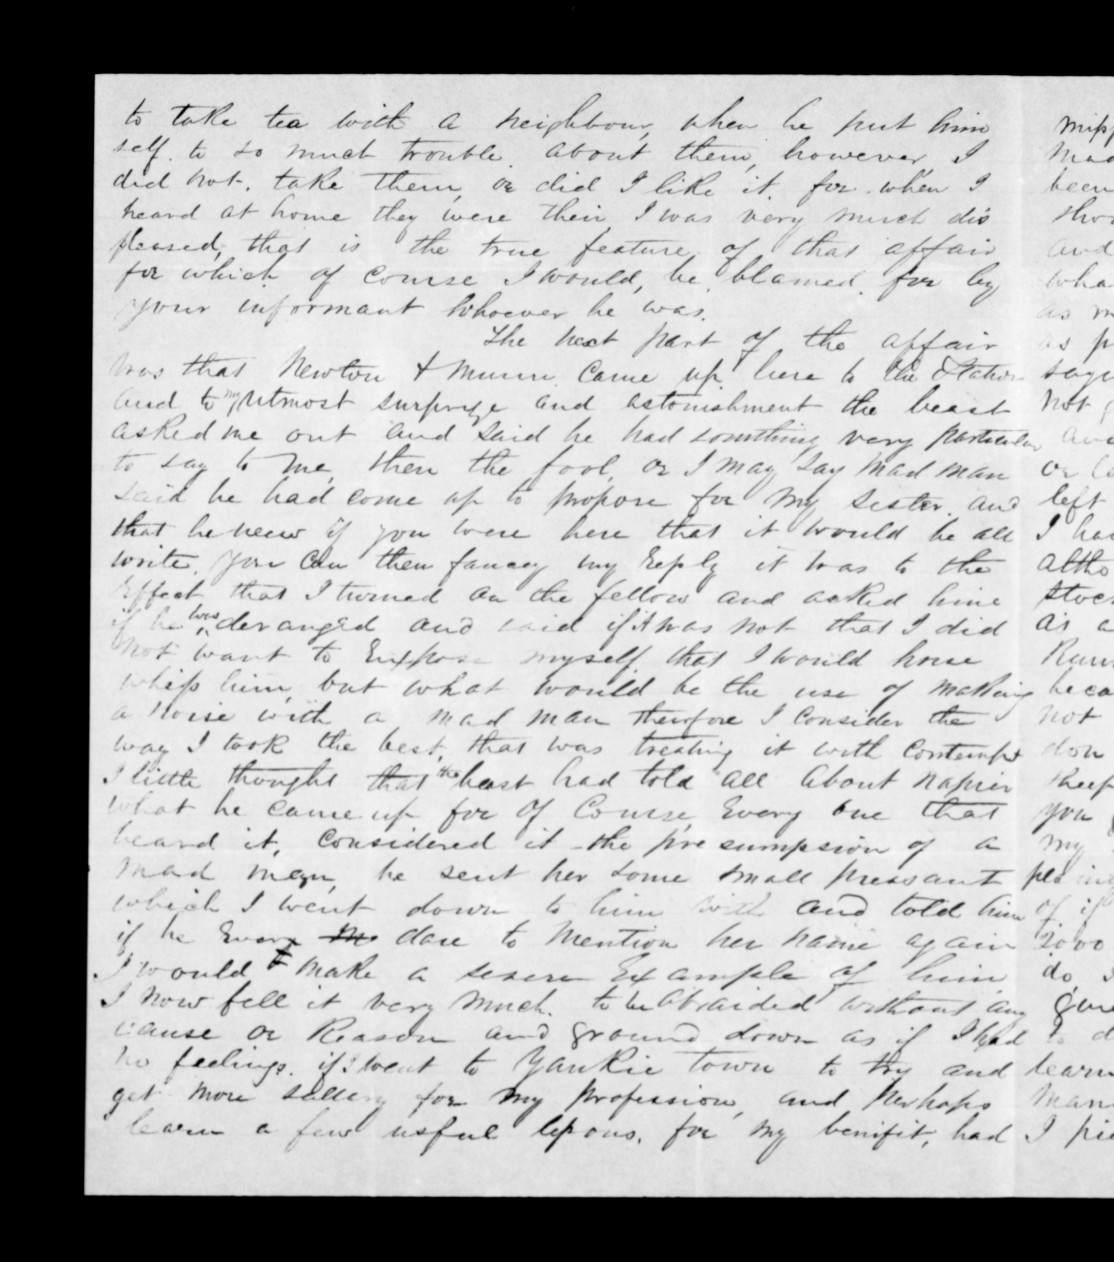 to take tea with a neighbour, when he put him
self. to so much trouble. about them, however, I
did not. take them, or did I like it. for. when I
heard at home they were their I was very much dis
pleased, that is the true feature of that affair
for which of course I would, be blamed. for by
your informant whoever he was.
The next part of the affair
was that Newton & Munn came up. here to the Station
and to my utmost surprize and astonishment the beast
asked me out and said he had something very particular
to say to me, then the fool, or I may say mad man
said he had come up to propose for my sister. and
that he new if you were here that it would be all
write. you can then fancy my reply it was to the
Effect that I turned on the fellow and asked him
if he was deranged and said if it was not that I did
not want to Expose myself, that I would horse
whip him, but what would be the use of making
a noise with a mad man therefore I consider the
way I took the best, that was treating it with contempt
I little thought that the beast had told all about napier
what he came up for of Course, Every one that
heard it, considered it the presumpsion of a
mad man, he sent her some small preasant
which I went down to him with and told him
if he Every dare to mention her name again
I would make a severe Example of him
I now fell it very much. to be abraided without any
cause or Reason and ground down as if I had
no feelings. if I went to Yankie Town to try and
get more sallery for my profession, and perhaps
learn a few usful lessons. for my benifit, had